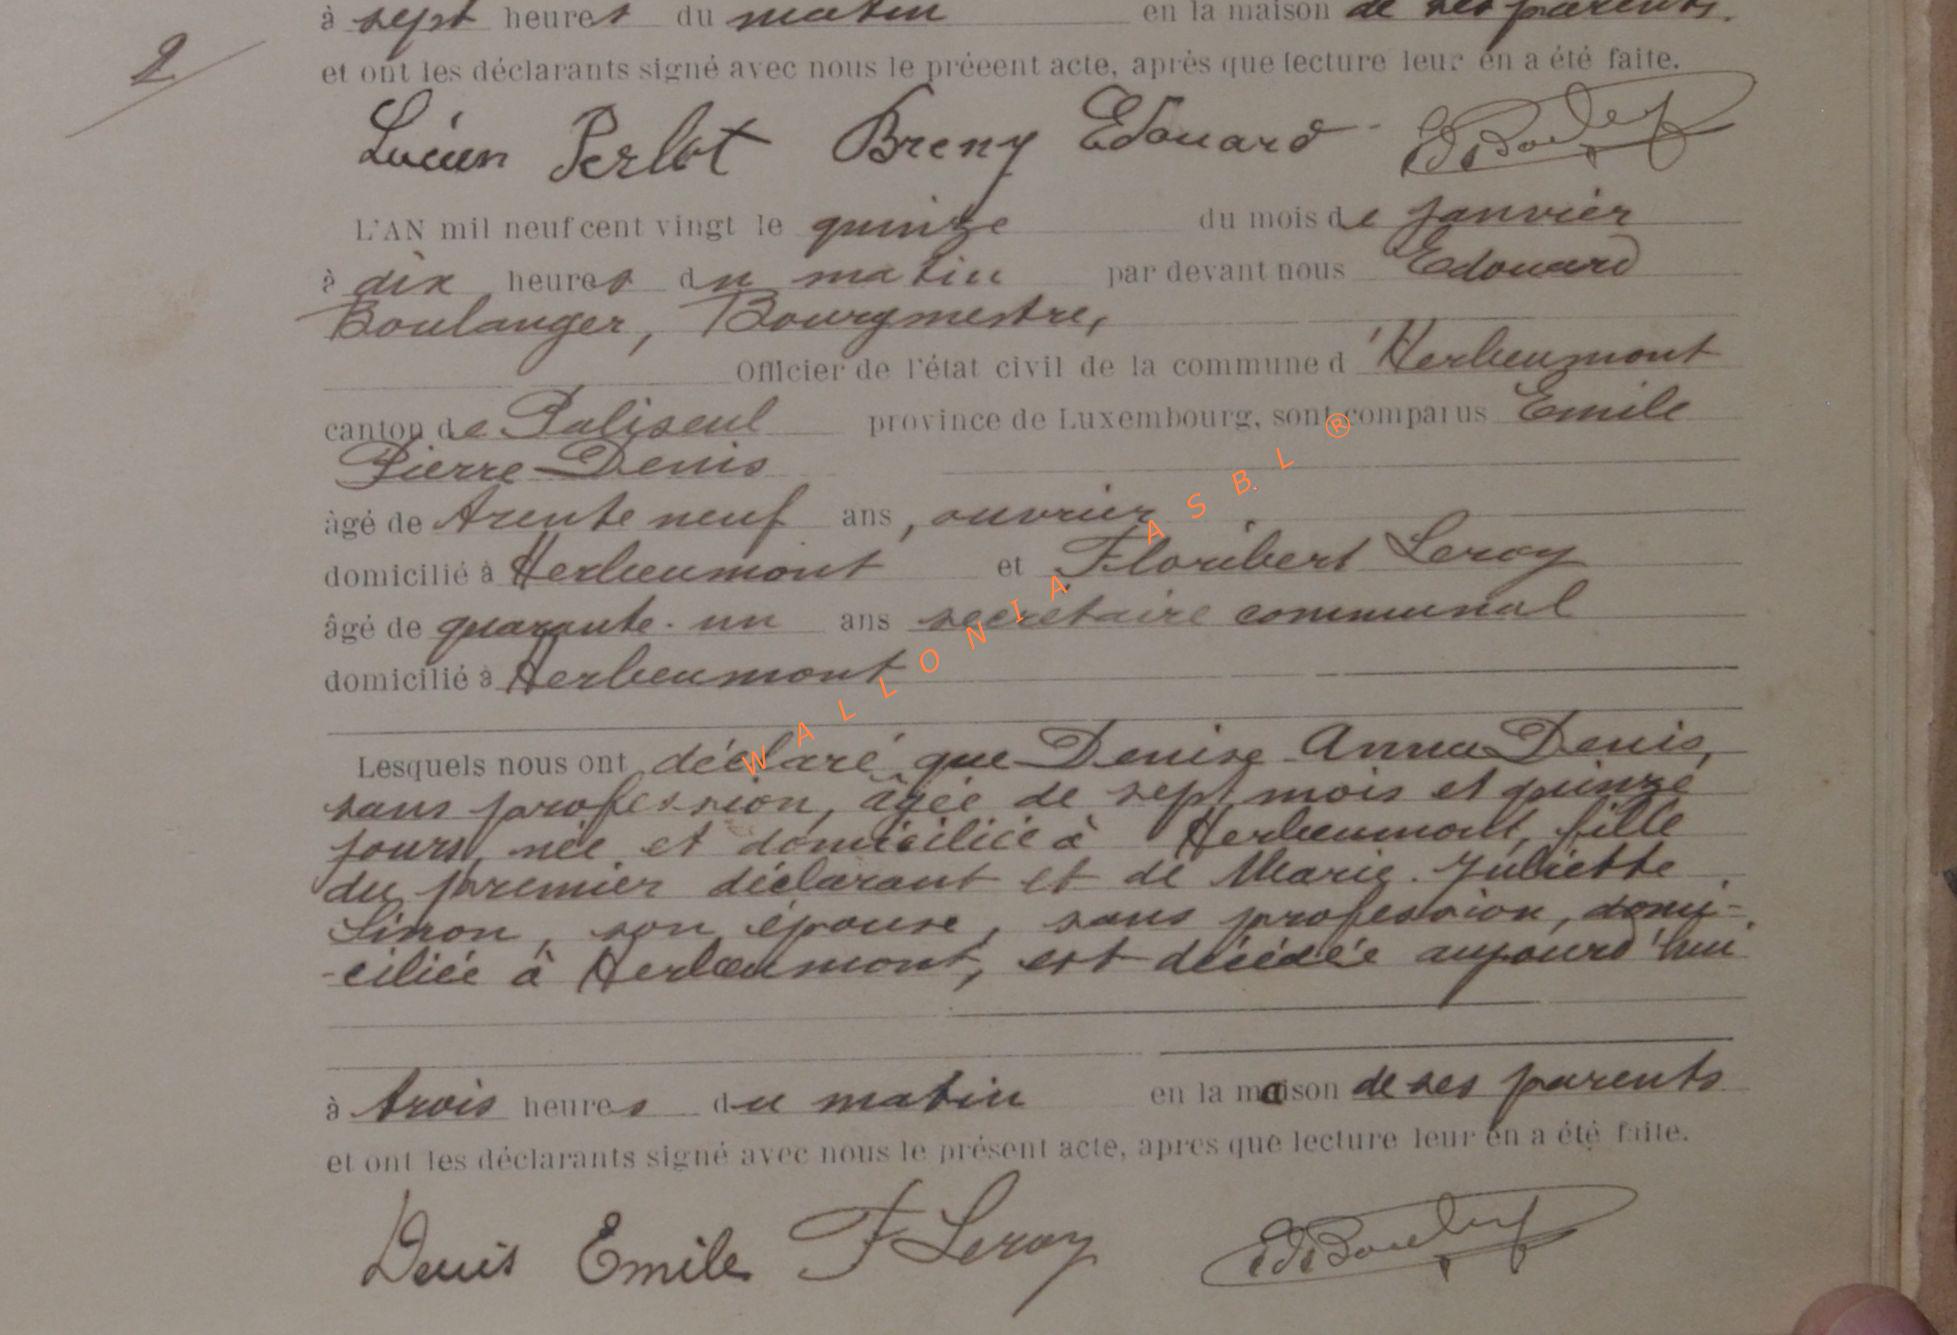 à sept heures du matin en la maison de ses parents.
2
et ont les déclarants signé avec nous le préeent acte, après que lecture leur en a été faite.
Lucien Perlot Breny Edouard Ed. Boulanger
L'AN mil neuf cent vingt le quinze du mois de janvier
à dix heures du matin par devant nous Edouard
Boulanger, Bourgmestre,
Officier de l'état civil de la commune d'Herbeumont
canton de Paliseul province de Luxembourg, sont comparus Emile
Pierre Denis
âgé de trente neuf ans, ouvrier
domicilié à Herbeumont et Floribert Leroy
âgé de quarante-un ans secrétaire communal
domicilié à Herbeumont
WALLONIA ASBL ®
Lesquels nous ont déclaré que Denise Anna Denis,
sans profession, âgée de sept mois et quinze
jours, née et domiciliée à Herbeumont, fille
du premier déclarant et de Marie-Juliette
Simon, son épouse, sans profession, domi-
-ciliée à Herbeumont, est décédée aujourd'hui
à trois heures du matin en la maison de ses parents
et ont les déclarants signé avec nous le présent acte, apres que lecture leur en a été faite.
Denis Emile F Leroy Ed. Boulanger